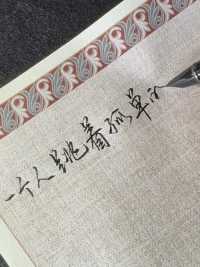 一个人跳着孤单的